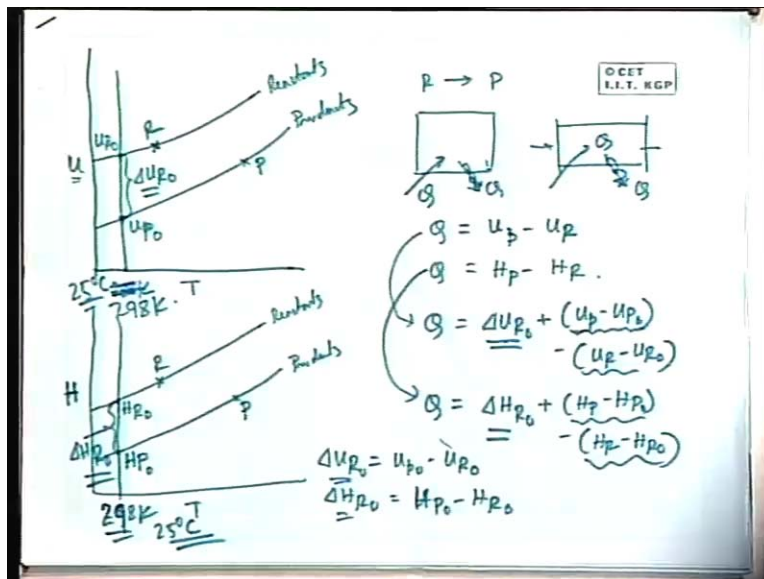 Reactants
R
Products
U_{R0}
P
U
ΔU_{R0}
U_{P0}
25°C
298K. T
Reactants
R
Products
H
H_{R0}
P
ΔH_{R0}
H_{P0}
298K T
25°C
R → P
© CET
I.I.T. KGP
Q Q
Q Q
Q = U_P - U_R
Q = H_P - H_R .
Q = ΔU_{R0} + (U_P - U_{P0})
- (U_R - U_{R0})
Q = ΔH_{R0} + (H_P - H_{P0})
- (H_R - H_{R0})
ΔU_{R0} = U_{P0} - U_{R0}
ΔH_{R0} = H_{P0} - H_{R0}